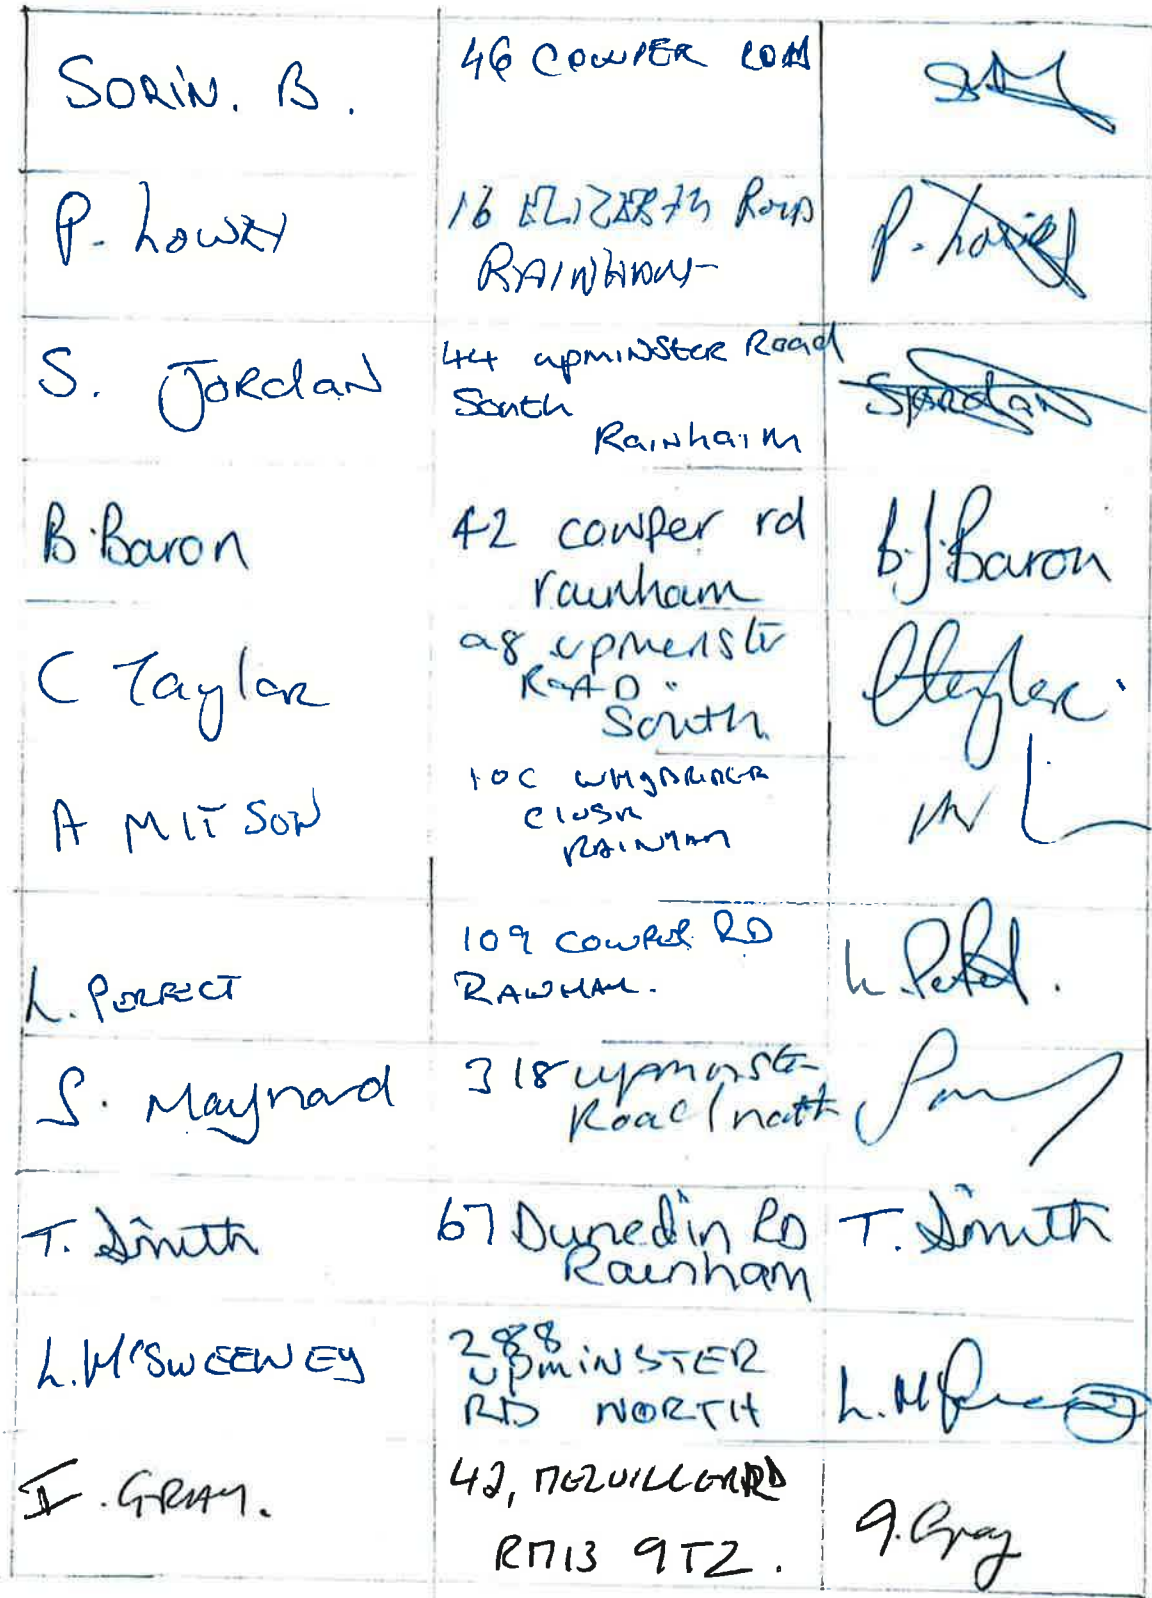 SORIN. B.
46 COWPER
P. LOWEY
16 ROAD
RAINHAM
P. Lowey
S. JORdaN
44 UPMINSTER Road
South
Rainhaim
SJordaN
B. Baron
42 cowper rd
rainham
B.J. Baron
C Taylor
98 upmenster
ROAD.
South
CTaylor.
A MITSON
10C
CLOSE
RAINHAM
L. PERFECT
109 COWPER RD
RAINHAM.
L. Perfect.
S. Maynard
318 upminster
Road north
T. Smith
67 Dunedin RD
Rainham
T. Smith
L. McSWEENEY
288
UPMINSTER
RD NORTH
I. GRAY.
42, MELVILLE RD
RM13 9TZ.
I. Gray